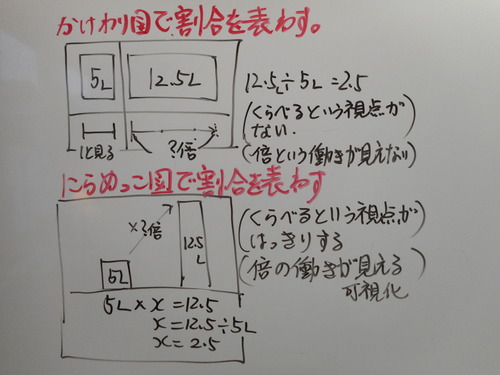 かけわり図で割合を表わす。
5L 12.5L
1と見る ?倍
12.5L÷5L=2.5
(くらべるという視点が
ない.
(倍という働きが見えない)
にらめっこ図で割合を表わす
×?倍
5L
12.5
L
5L×x=12.5
x=12.5÷5L
x=2.5
(くらべるという視点が
はっきりする
(倍の働きが見える)
可視化